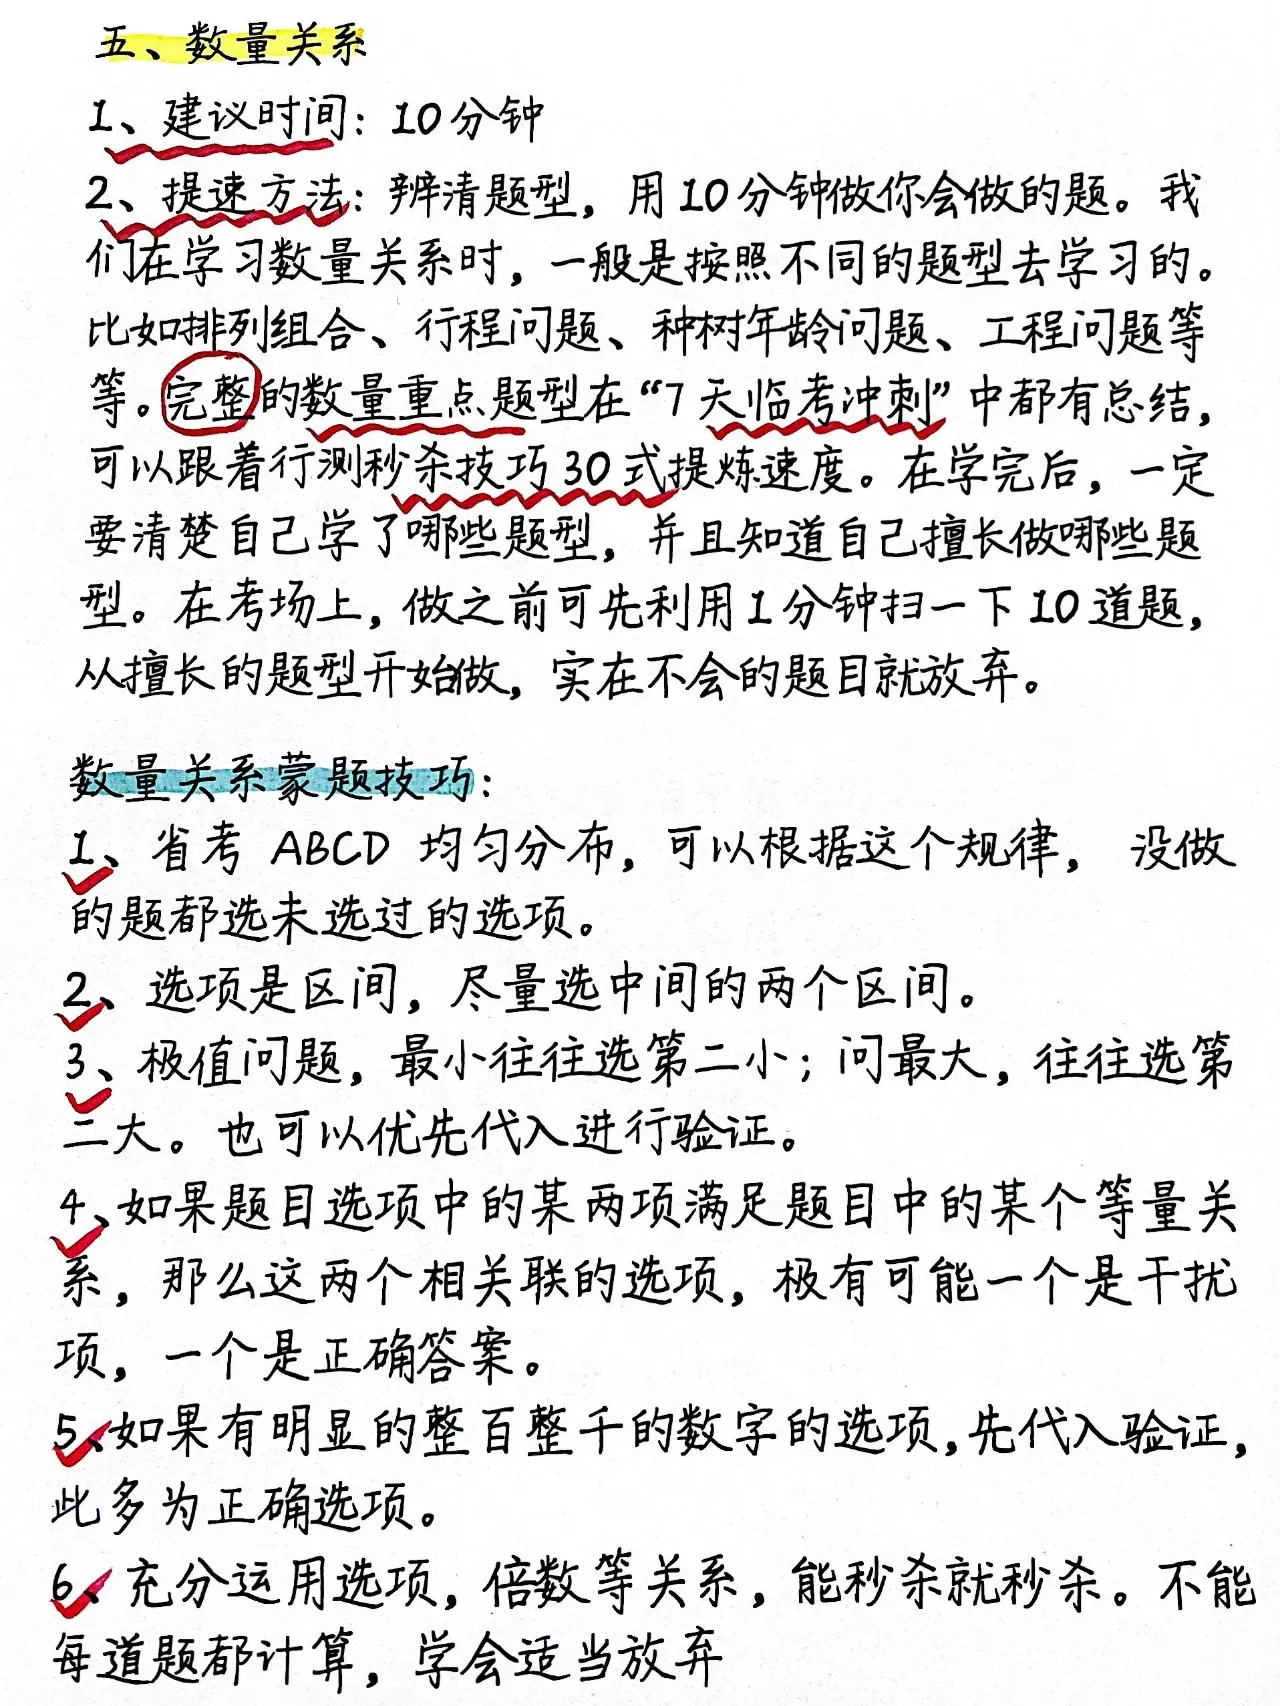 五、数量关系
1、建议时间：10分钟
2、提速方法：辨清题型，用10分钟做你会做的题。我
们在学习数量关系时，一般是按照不同的题型去学习的。
比如排列组合、行程问题、种树年龄问题、工程问题等
等。完整的数量重点题型在“7天临考冲刺”中都有总结，
可以跟着行测秒杀技巧30式提炼速度。在学完后，一定
要清楚自己学了哪些题型，并且知道自己擅长做哪些题
型。在考场上，做之前可先利用1分钟扫一下10道题，
从擅长的题型开始做，实在不会的题目就放弃。
数量关系蒙题技巧：
1、省考 ABCD 均匀分布，可以根据这个规律， 没做
的题都选未选过的选项。
2、选项是区间，尽量选中间的两个区间。
3、极值问题，最小往往选第二小；问最大，往往选第
二大。也可以优先代入进行验证。
4、如果题目选项中的某两项满足题目中的某个等量关
系，那么这两个相关联的选项，极有可能一个是干扰
项，一个是正确答案。
5、如果有明显的整百整千的数字的选项，先代入验证，
此多为正确选项。
6、充分运用选项，倍数等关系，能秒杀就秒杀。不能
每道题都计算，学会适当放弃